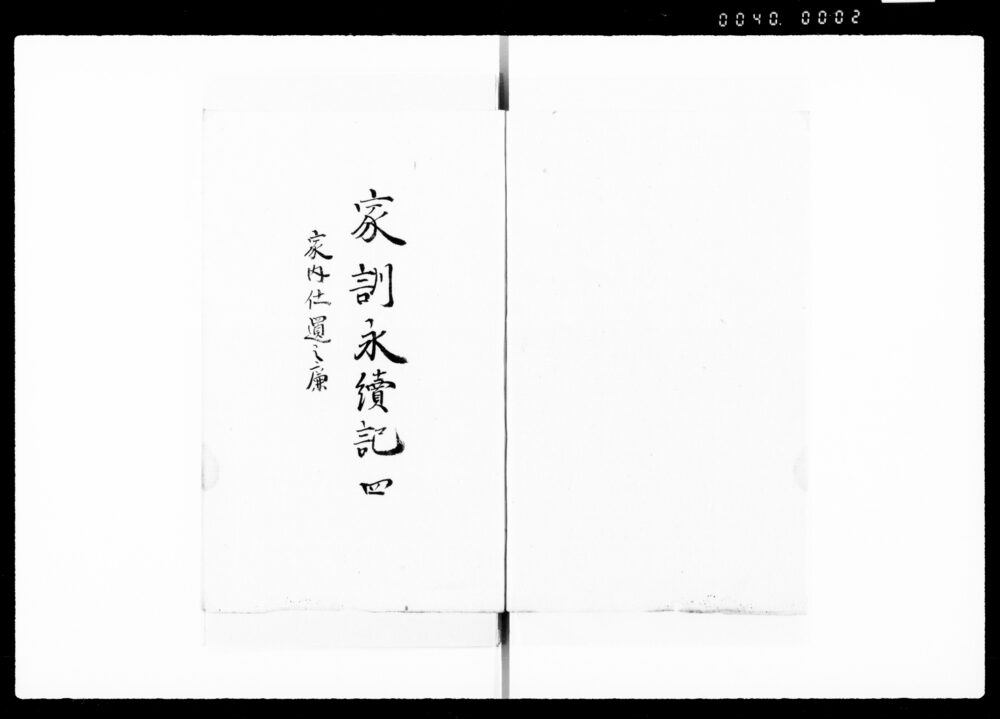 0040. 0002
家訓永續記 四
家内仕置之廉